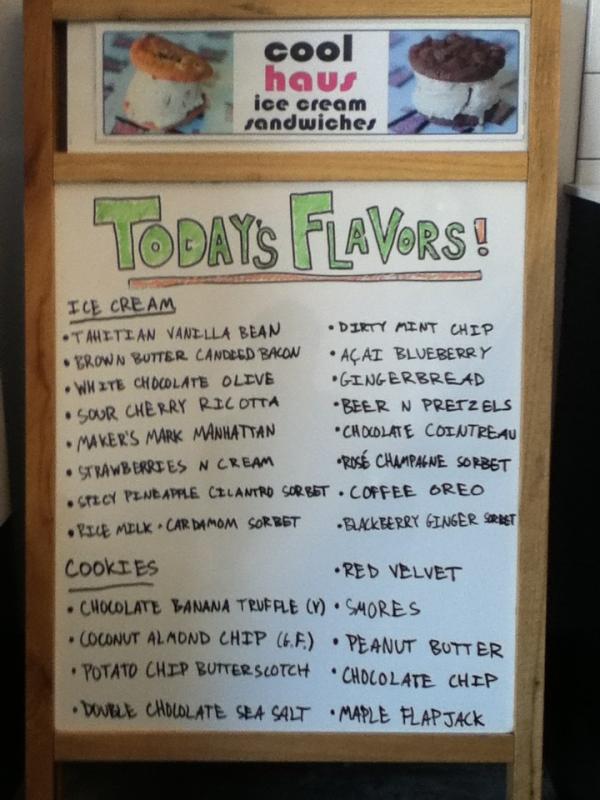 cool
haus
ice cream
sandwiches
TODAY'S FLAVORS!
ICE CREAM
• TAHITIAN VANILLA BEAN
• BROWN BUTTER CANDEED BACON
• WHITE CHOCOLATE OLIVE
• SOUR CHERRY RICOTTA
• MAKER'S MARK MANHATTAN
• STRAWBERRIES N CREAM
• SPICY PINEAPPLE CILANTRO SORBET
• RICE MILK • CARDAMOM SORBET
• DIRTY MINT CHIP
• AÇAI BLUEBERRY
• GINGERBREAD
• BEER N PRETZELS
• CHOCOLATE COINTREAU
• ROSÉ CHAMPAGNE SORBET
• COFFEE OREO
• BLACKBERRY GINGER SORBET
COOKIES
• CHOCOLATE BANANA TRUFFLE (V)
• COCONUT ALMOND CHIP (G.F.)
• POTATO CHIP BUTTERSCOTCH
• DOUBLE CHOCOLATE SEA SALT
• RED VELVET
• SMORES
• PEANUT BUTTER
• CHOCOLATE CHIP
• MAPLE FLAPJACK